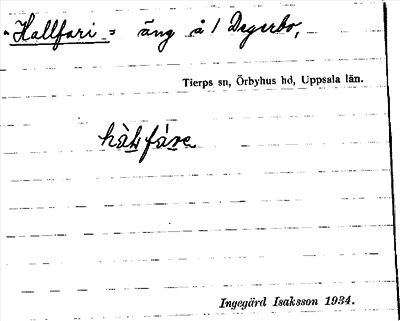 "Hallfari" = äng å / Degerbo,
Tierps sn, Örbyhus hd, Uppsala län.
hàl₂fàre
Ingegärd Isaksson 1934.